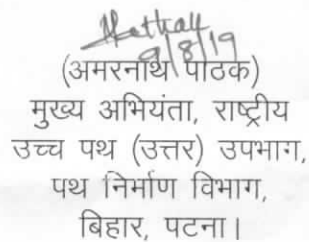 9/8/19
(अमरनाथ पाठक)
मुख्य अभियंता, राष्ट्रीय
उच्च पथ (उत्तर) उपभाग,
पथ निर्माण विभाग,
बिहार, पटना।